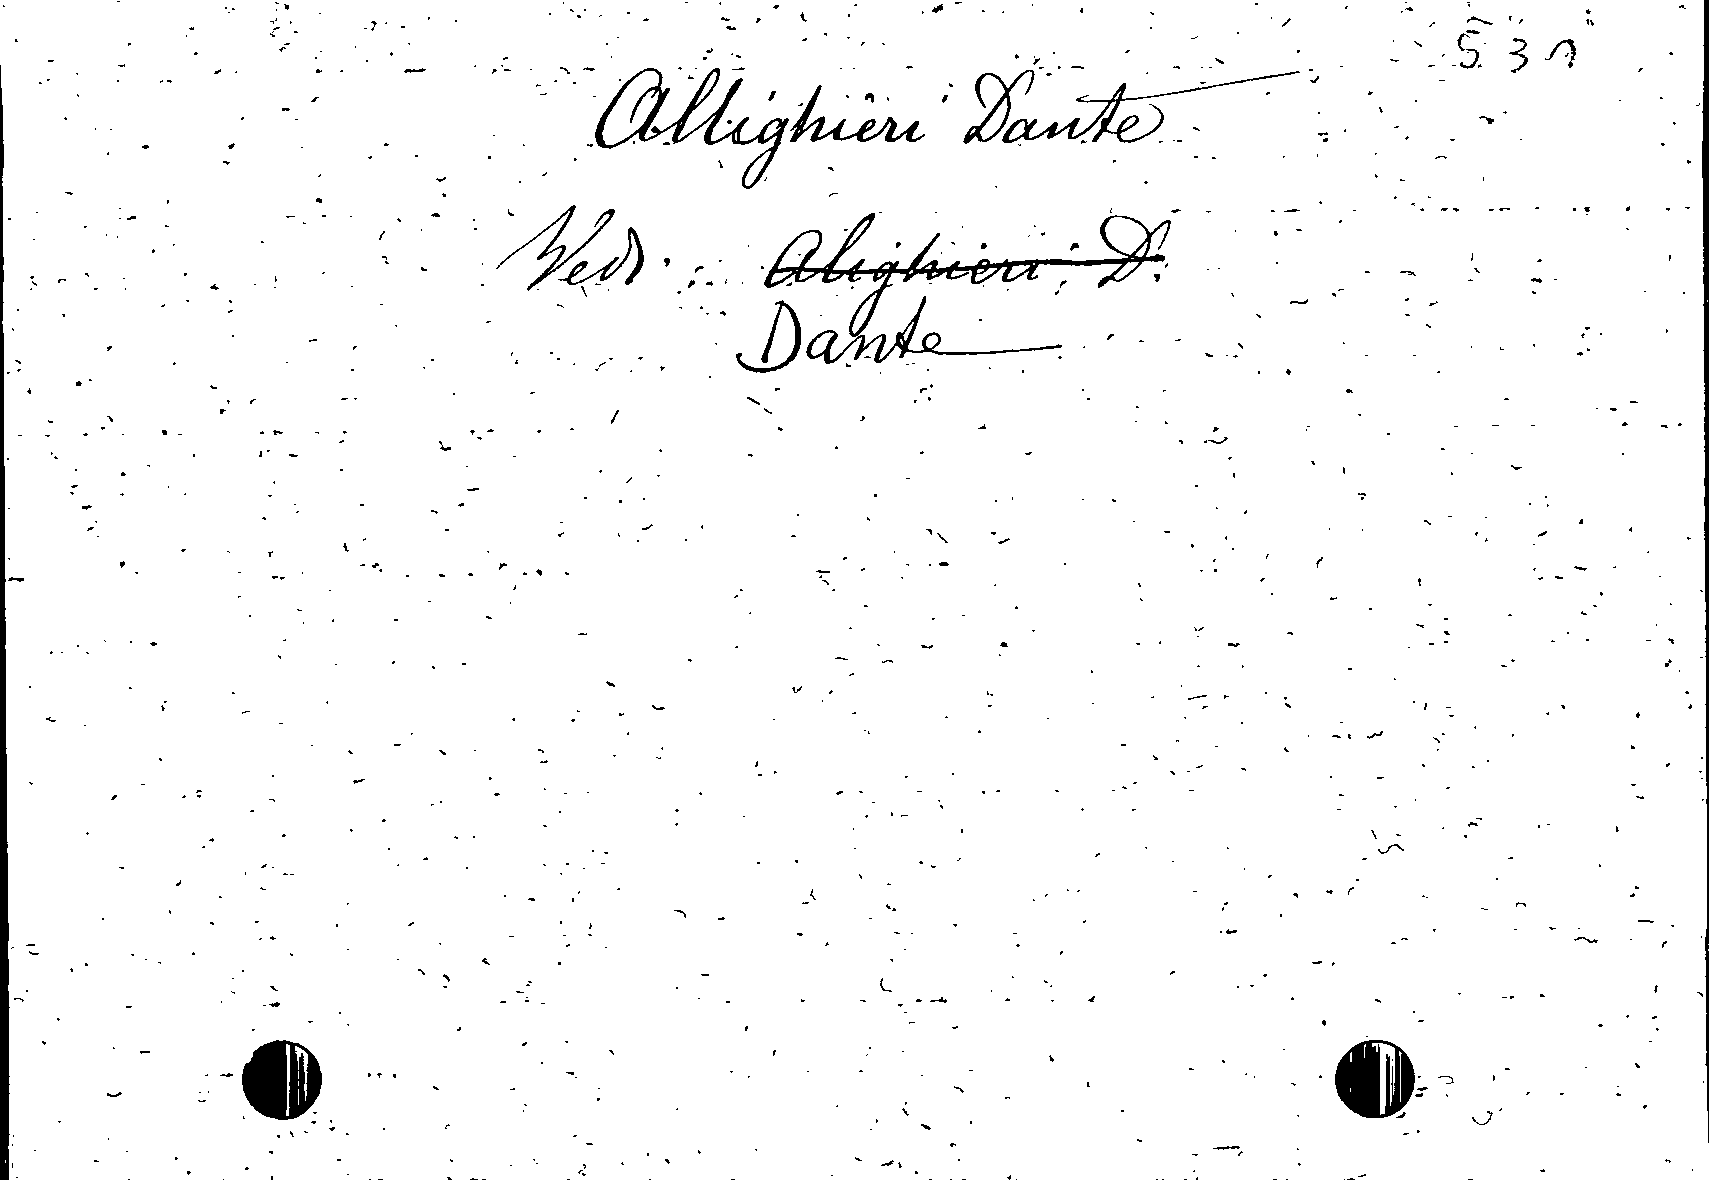 531
Allighieri Dante
Vedi: Alighieri D.
Dante